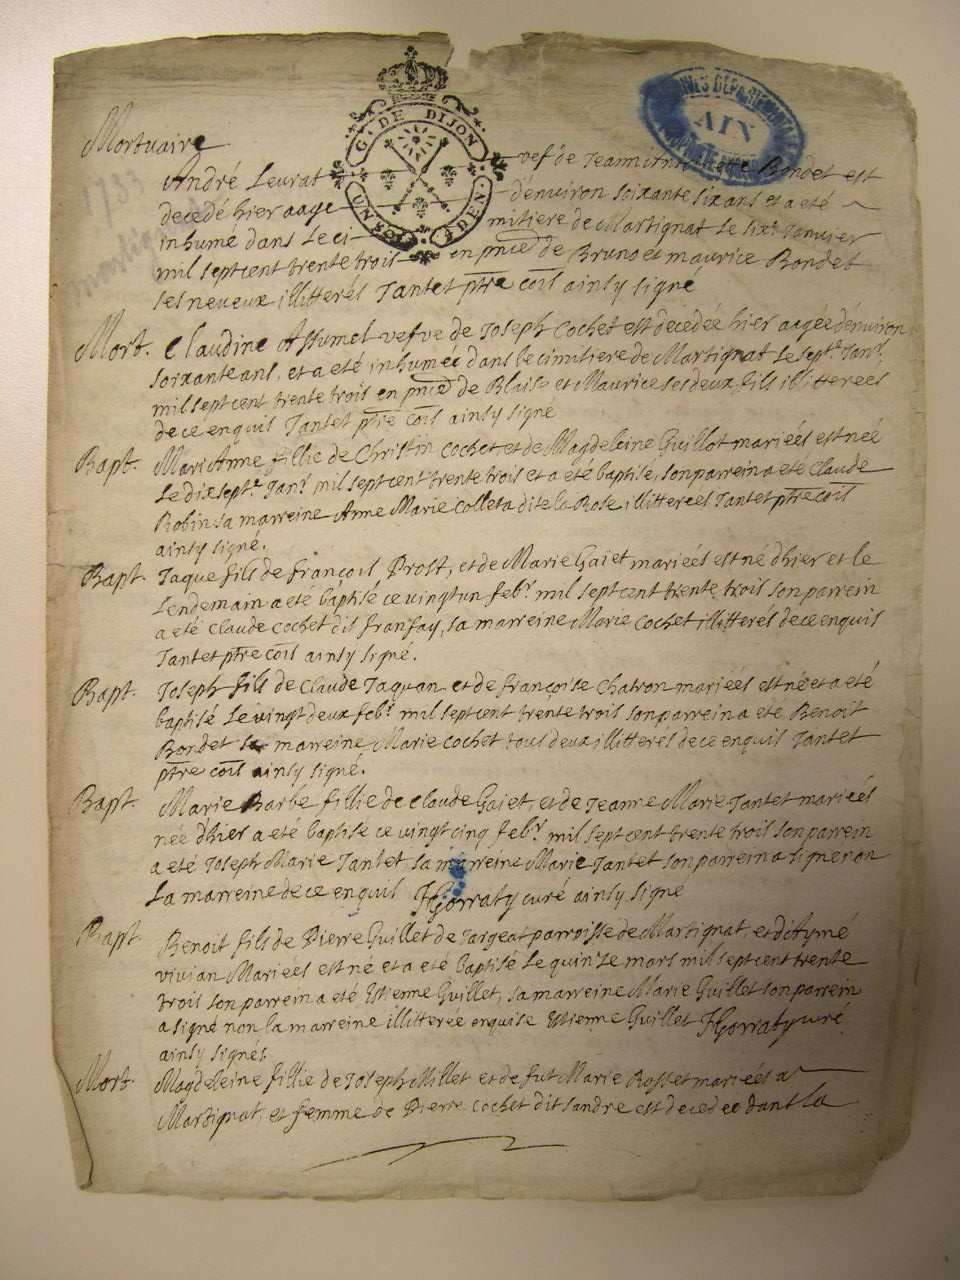 G. DE DIJON
UN SOL 4 DEN
ARCHIVES DEPARTEMENTALES
AIN
Mortuaire
André Levrat vef de Jeanne Bondet est
decedé hier aagé d'environ soixante six ans et a eté
inhumé dans le ci mitiere de Martignat le six.e Janvier
mil sept cent trente trois en pnce de Bruno et maurice Bondet
ses neveux illitterés Tantet ptre coil ainsy signé
Mort. Claudine Assumel vefve de Joseph Cochet est decedée hier aagée d'environ
soixante ans, et a eté inhumée dans le cimitiere de Martignat le sept.e Janr.
mil sept cent trente trois en pnce de Blaise et Maurice ses deux fils illitterées
de ce enquis Tantet ptre coil ainsy signé
Bapt. Mari Anne fillie de Christin Cochet, et de Magdeleine Guillot mariées est neé
le dix sept.e Janr. mil sept cent trente trois et a eté baptisé, son parrein a eté Claude
Robin sa marreine Anne Marie Colleta dite la Rose illitterées Tantet ptre coil
ainsy signé.
Bapt. Jaque fils de françois Prost, et de Marie Gaiet mariées est né d'hier et le
lendemain a eté baptisé ce vingt un febr. mil sept cent trente trois son parrein
a eté Claude Cochet dit franfay, sa marreine Marie Cochet illitterés de ce enquis
Tantet ptre coil ainsy signé.
Bapt. Joseph fils de Claude Jaquan et de françoise Chatron mariées est né et a eté
baptisé le vingt deux febr. mil sept cent trente trois son parrein a eté Benoit
Bondet sa marreine Marie Cochet tous deux illitterés de ce enquis Tantet
ptre coil ainsy signé.
Bapt. Marie Barbe fillie de Claude Gaiet, et de Jeanne Marie Tantet mariées
née d'hier a eté baptisé ce vingt cinq febr. mil sept cent trente trois son parrein
a eté Joseph Marie Tantet sa marreine Marie Tantet son parrein a signé non
la marreine de ce enquis Gorraty curé ainsy signe
Bapt. Benoit fils de Pierre Guillet de Jargeat parroisse de Martignat, et d'Aymé
vivian Mariées est né et a eté baptisé le quinze mars mil sept cent trente
trois son parrein a eté Estienne Guillet, sa marreine Marie Guillet son parrein
a signé non la marreine illitterée enquise Estienne Guillet Gorraty curé
ainsy signés
Mort. Magdeleine fillie de Joseph Millet et de fut Marie Rosset mariées a
Martignat, et femme de Pierre Cochet dit sandre est decedee dans la